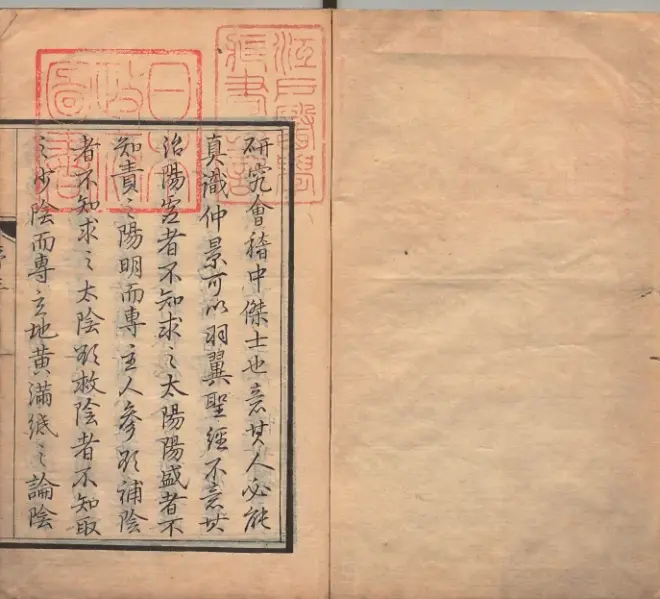 江戶醫學
藏書之記
日本
政府
圖書
研究會稽中傑士也意其人必能
真識仲景可以羽翼聖經不意其
治陽虛者不知求之太陽陽盛者不
知責之陽明而專主人參欲補陰
者不知求之太陰欲救陰者不知取
之少陰而專主地黃滿紙之論陰
序三